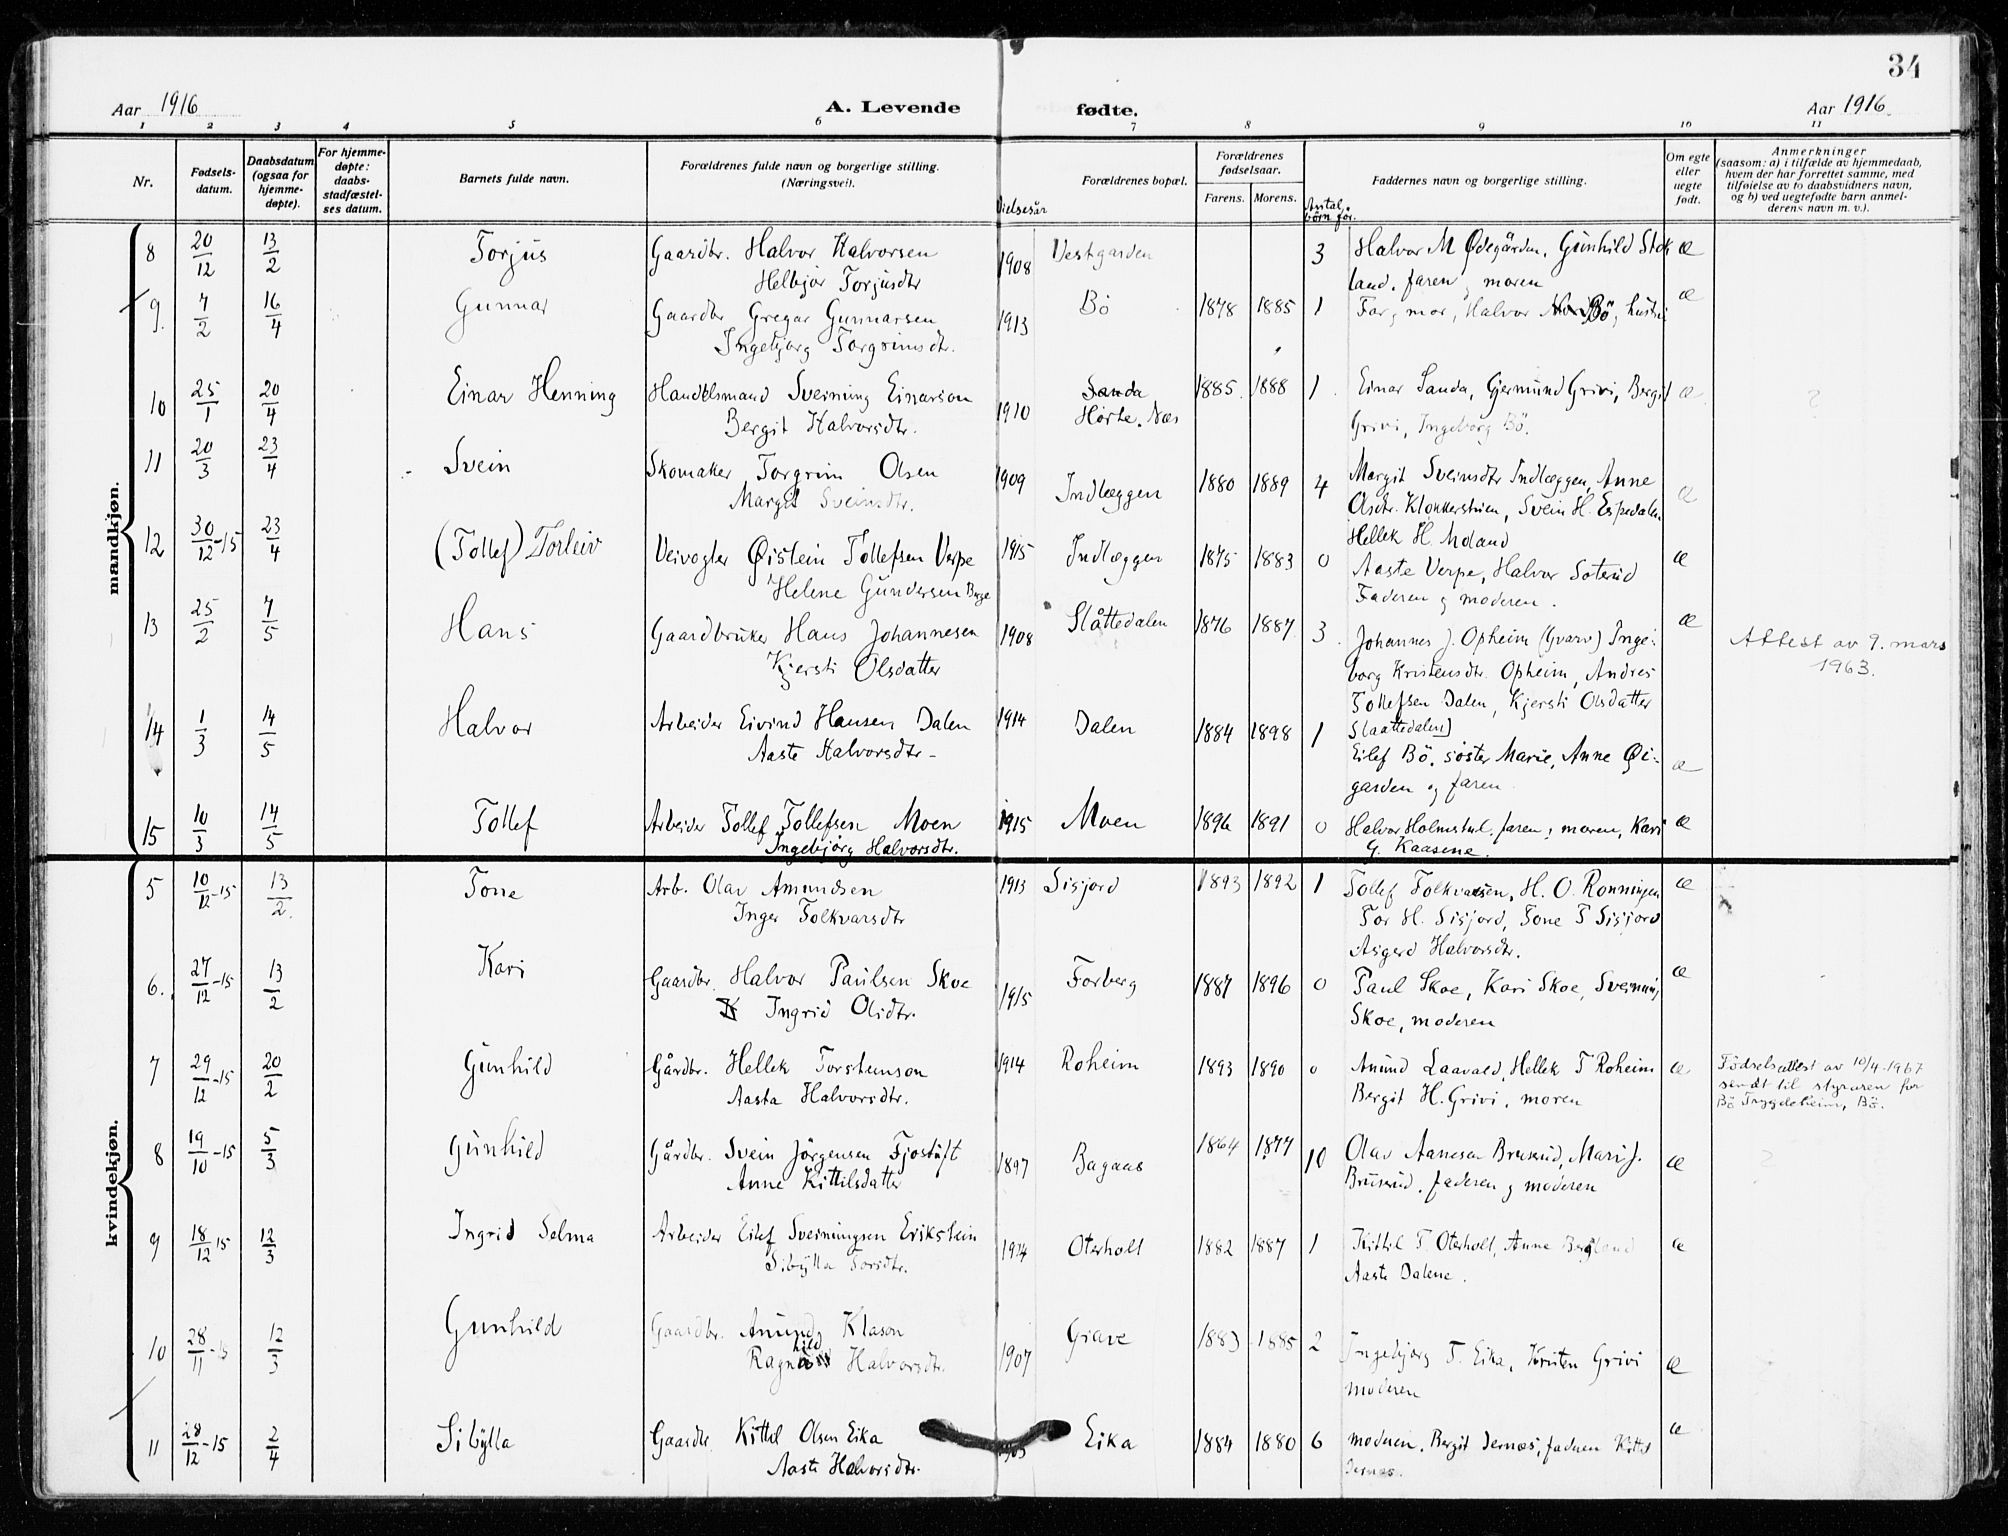 34
Aar 1916 A. Levende fødte. Aar 1916.
1 2 3 4 5 6 7 8 9 10 11
Nr. Fødsels-datum. Daabsdatum (ogsaa for hjemme-døpte). For hjemme-døpte: daabs-stadfæstel-ses datum. Barnets fulde navn. Forældrenes fulde navn og borgerlige stilling. (Næringsvei). Vielsesår Forældrenes bopæl. Forældrenes fødselsaar. Farens. Morens. Antal børn før. Faddernes navn og borgerlige stilling. Om egte eller uegte født. Anmerkninger (saasom: a) i tilfælde av hjemmedaab, hvem der har forrettet samme, med tilføielse av to daabsvidners navn, og b) ved uegtefødte barn anmel-derens navn m. v.).
mandkjøn.
8 20/12 13/2 Torjus Gaardbr. Halvor Halvorsen 1908 Vestgarden 3 Halvor M Ødegården, Gunhild Stok æ
Helbjør Torjusdtr land, faren, moren
9. 7/2 16/4 Gunnar Gaardbr Gregar Gunnarsen 1913 Bö 1878 1885 1 Far, mor, Halvor Bö, hustru æ
Ingebjørg Torgrimsdtr.
10 25/1 20/4 Einar Henning Handelsmand Sveinung Einarson 1910 Sanda 1885. 1888 1 Einar Sanda, Gjermund Grivi, Bergit æ
Bergit Halvorsdtr. Hørte. Næs Grivi, Ingeborg Bö.
11 20/3 23/4 Svein Skomaker Torgrim Olsen 1909 Indlæggen 1880 1889 4 Margit Sveinsdtr Indlæggen, Anne æ
Margit Sveinsdtr. Olsdtr. Klokkerstuen, Svein H. Espedalen
Hellek H. Moland
12 30/12-15 23/4 (Tollef) Torleiv Veivogter Øistein Tollefsen Verpe 1915 Indlæggen 1875 1883 0 Aaste Verpe, Halvor Soterud æ
Helene Gundersen Berge Faderen og moderen.
13 25/2 7/5 Hans Gaardbruker Hans Johannesen 1908 Slåttedalen 1876 1887 3. Johannes J. Opheim (Gvarv) Inge- æ Attest av 9. mars
Kjersti Olsdatter borg Kristensdtr. Opheim, Andres 1963.
Tollefsen Dalen, Kjersti Olsdatter
Slaattedalen]
14 1/3 14/5 Halvor Arbeider Eivind Hansen Dalen 1914 Dalen 1884 1898 1 Eilef Bö, søster Marie, Anne Øi- æ
Aaste Halvorsdtr- garden og faren.
15 10/3 14/5 Tollef Arbeider Tollef Tollefsen Moen 1915 Moen 1896 1891 0 Halvor Holmstul, faren, moren, Kari æ
Ingebjørg Halvorsdtr. G. Kaasene.
kvindekjøn.
5 10/12-15 13/2. Tone Arb. Olav Amundsen 1913 Sisjord 1893 1892 1 Tollef Folkvarsen, H. O. Rønningen æ
Inger Folkvarsdtr Tor H. Sisjord, Tone T Sisjord
Asgerd Halvorsdtr.
6. 27/12-15 13/2 Kari Gaardbr. Halvor Paulsen Skoe 1915 Forberg 1887 1896 0 Paul Skoe, Kari Skoe, Sveinung æ
Ingrid Olsdtr. Skoe, moderen
7 29/12-15 20/2 Gunhild Gårdbr. Hellek Torsteinson 1914 Roheim 1893 1890 0 Anund Laavald, Hellek T Roheim æ Fødselsattest av 10/4-1967
Aasta Halvorsdtr. Bergit H. Grivi, moren sendt til styraren for
Bø Trygdeheim, Bø.
8 19/10-15 5/3 Gunhild Gårdbr. Svein Jörgensen Fjostuft 1897 Bagaas 1864 1877 10 Olav Aanesen Bruserud, Mari J. æ
Anne Kittilsdatter Bruserud, faderen og moderen
9 18/12 15 12/3 Ingrid Selma Arbeider Eilef Sveinungsen Erikstein 1914 Oterholt 1882 1887 1 Kittil T Oterholt, Anne Bergland æ
Sibylla Torsdtr. Aaste Dalene.
10 28/11-15 12/3 Gunhild Gaardbr. Anund Klason 1907 Giave 1883 1885 2 Ingebjørg T. Eika, Kristen Grivi æ
Ragnhild Halvorsdtr. moderen
11 28/12-15 2/4 Sibylla Gaardbr. Kittel Olsen Eika Eika 1884 1880 6 moderen, Bergit Jernæs, faderen Kittel æ
Aaste Halvorsdtr. Jernæs.